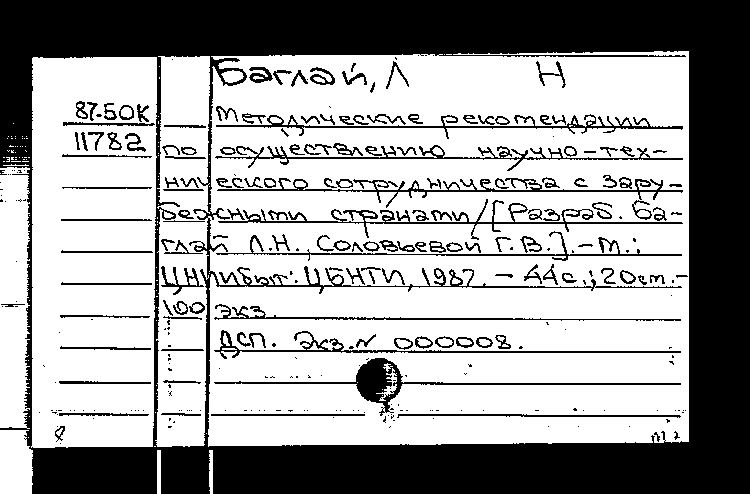 Баглай, Л Н
87-5ОК Методические рекомендации
11782 по осуществлению научно-тех-
нического сотрудничества с зару-
бежными странами / [Разраб. Ба-
глай Л.Н., Соловьевой Г.В.]. - М.:
ЦНИИбыт: ЦБНТИ, 1987. - 44с.; 20см. -
100 экз.
ДСП. Экз.N 000008.